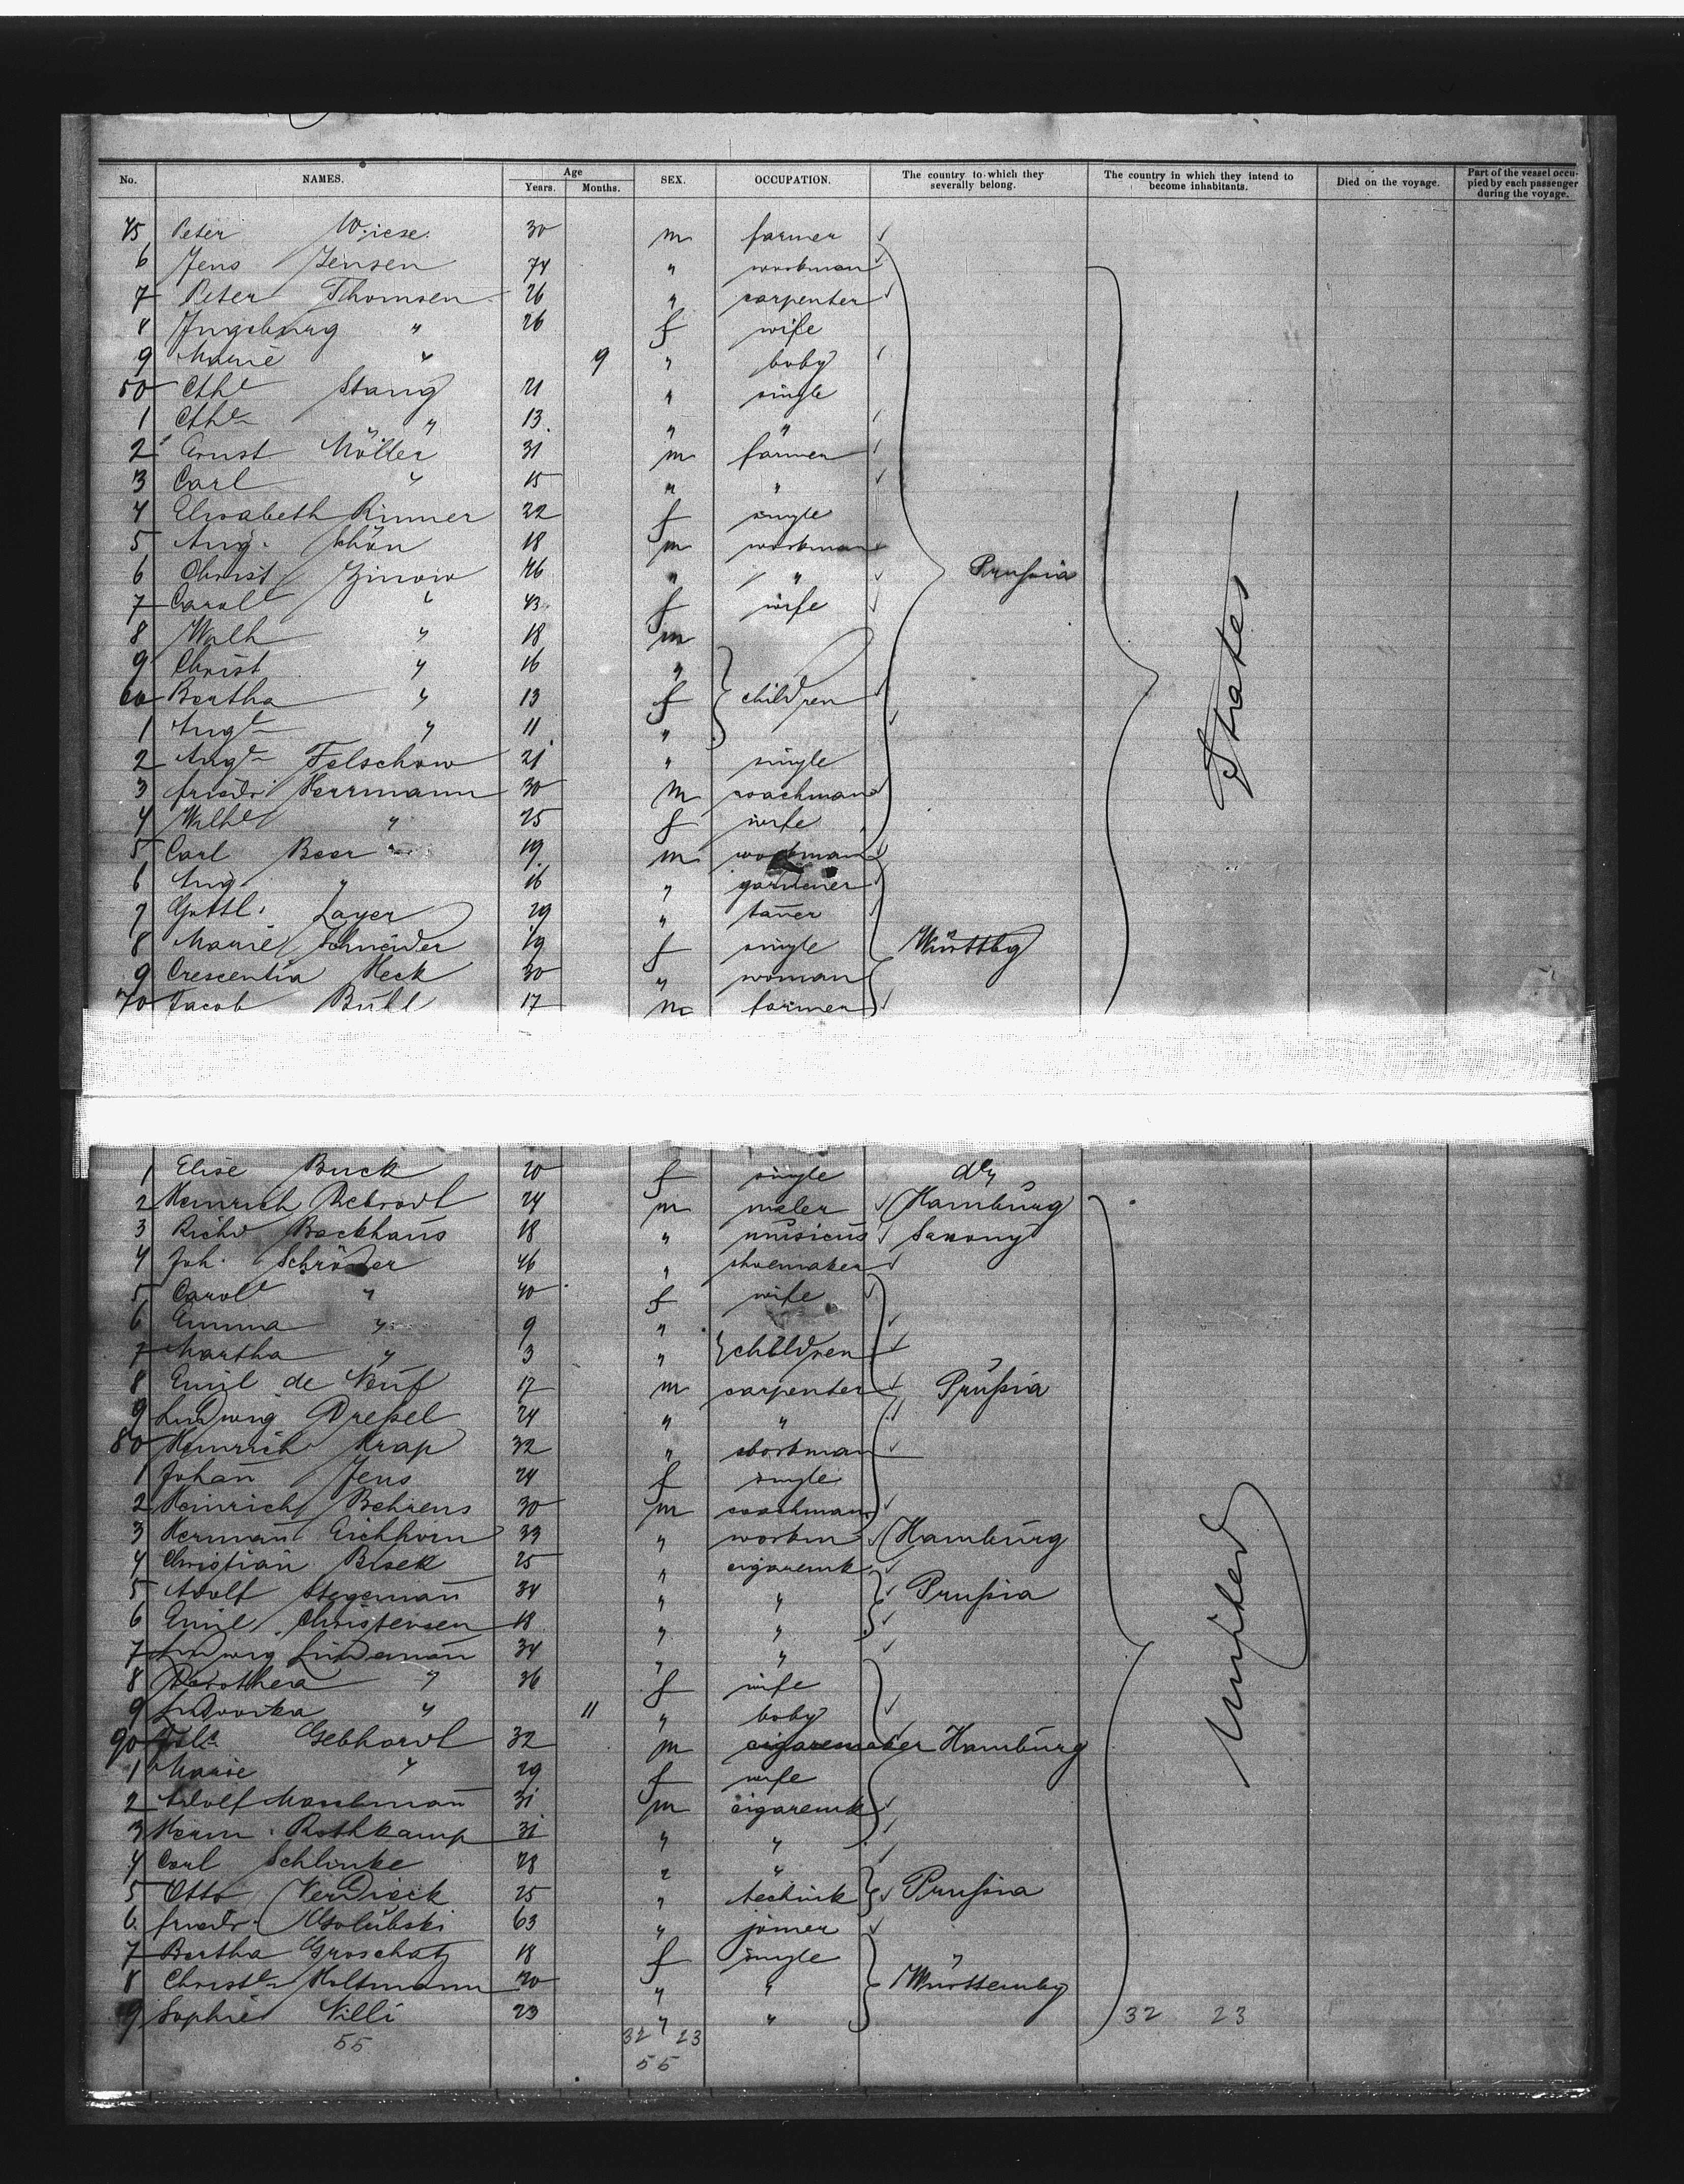 No. NAMES. Age Years. Months. SEX. OCCUPATION. The country to which they severally belong. The country in which they intend to become inhabitants. Died on the voyage. Part of the vessel occupied by each passenger during the voyage.
45 Peter Wiese 30 m farmer
6 Jens Jensen 74 " workman
7 Peter Thomsen 26 " carpenter
8 Ingeburg " 26 f wife
9 Marie " 9 " baby
50 Cthe Stang 21 " single
1 Cthe " 13 " "
2 Ernst Möller 31 m farmer
3 Carl " 15 " "
4 Elisabeth Rinner 22 f single
5 Aug. Schön 18 m workman
6 Christ " 46 " " Prußia
7 Carol " 43 f wife
8 Wilh " 18 m
9 Christ " 16 "
60 Bertha " 13 f children
1 Auguste " 11 "
2 Auguste Felschow 21 " single
3 friedr Herrmann 30 m coachman
4 Wilhe " 25 f wife
5 Carl Beer 19 m workman
6 Aug. " 16 " gardener
7 Gottl. Layer 29 " taner
8 Marie Schneider 19 f single Württbg
9 Crescentia Heck 30 " woman
70 Jacob Buhl 17 m farmer
States
1 Elise Buck 20 f single
2 Heinrich 24 m maler Hamburg
3 Richd Backhaus 18 " musicus Saxony
4 Joh. Schröder 46 " shoemaker
5 Carol " 40 f wife
6 Emma " 9 "
7 Martha " 3 " children
8 Emil de Neuf 17 m carpenter Prußia
9 Ludwig Dreßel 24 " "
80 Heinrich Krap 32 " workman
1 Johañ Jens 24 f single
2 Heinrich Behrens 30 m coachman
3 Hermañ Eichhorn 33 " workm Hamburg
4 Christian Bisek 25 " cigaremk
5 Adolf Stegemañ 34 " " Prußia
6 Emil Christensen 18 " "
7 Ludwig Lindemañ 34 " "
8 Dorothea " 36 f wife
9 " 11 " baby
90 Gebhardt 32 m cigaremaker Hamburg
1 Marie " 29 f wife
2 Adolf 31 m cigaremk
3 Herm. Rothkamp 31 " "
4 Carl Schlinke 28 " "
5 Otto Verdieck 25 " technik Prußia
6 friedr. 63 " joiner
7 Bertha Groschatz 18 f single "
8 Christe Holtmann 20 " " Württembg
9 Sophie Nilli 23 " " 32 23
55 32 23
55
United